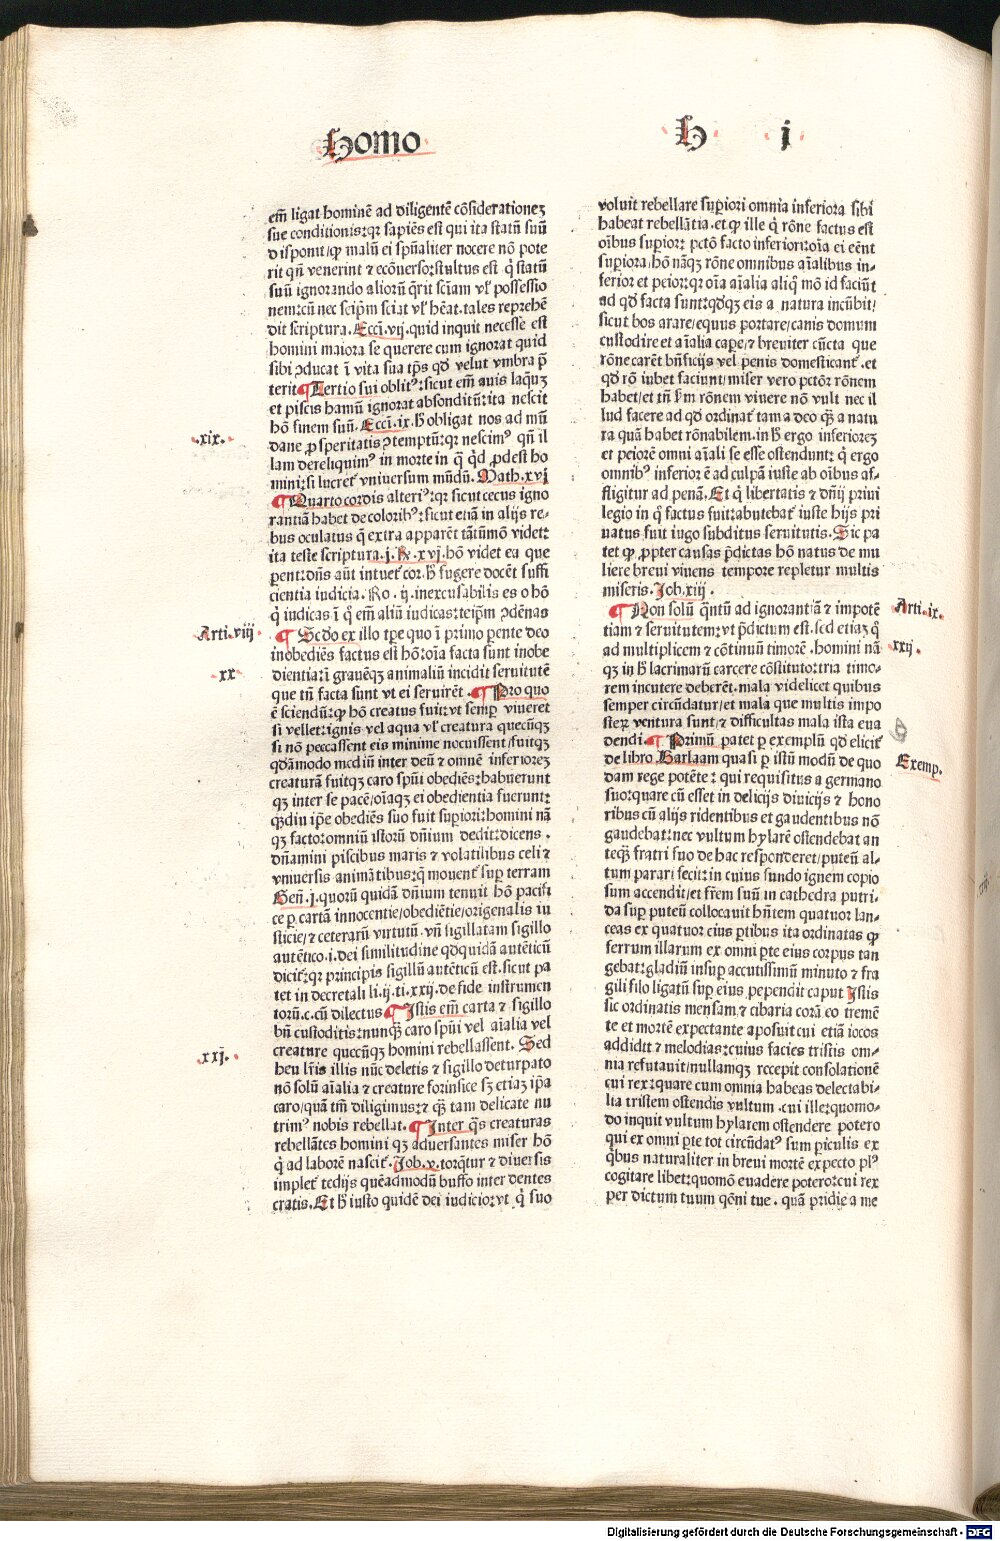 Homo
H i
em̄ ligat hominē ad diligentē cōsiderationeʒ
sue conditionis:qꝛ sapiēs est qui ita statū suū
disponit/ꝙ malū ei spūaliter nocere nō pote
rit qn̄ venerint ⁊ ecōuerso:stultus est q̇ statū
suū ignorando alioꝝ q̄rit sciam vl̓ possessio
nem:cū nec seip̄m sciat vl̓ hēat.tales reprehē
dit scriptura.Ecci.vij.quid inquit necesse est
homini maiora se querere cum ignorat quid
sibi ꝯducat ī vita sua tp̄s qd̓ velut vmbra p̄
terit ¶Tertio sui oblitꝰ:sicut em̄ auis laq̄uʒ
et piscis hamū ignorat absconditū:ita nescit
hō finem suū.Ecci.ix.h̓ obligat nos ad mū
dane ꝓsperitatis ꝯtemptū:qꝛ nescimꝰ qn̄ il
lam derelinquimꝰ in morte in q̄ q̇d ꝓdest ho
mini:si lucret̓ vniuersum mūdū.Math.xvj
¶Quarto cordis alteriꝰ:qꝛ sicut cecus igno
rantiā habet de coloribꝰ:sicut etiā in alijs re⸗
bus oculatus q̄ extra apparēt tātūmō videt:
ita teste scriptura.j.R̄.xvj.hō videt ea que
parent:dn̄s aūt intuet̓ cor.h̓ fugere docēt suffi
cientia iudicia.Ro.ij.inexcusabilis es o hō
q̇ indicas ī q̇ em̄ aliū iudicas:teip̄m ꝯdēnas
¶Scd̓o ex illo tp̄e quo ī primo parente deo
inobediēs factus est hō:oīa facta sunt inobe
dientia:ī grauēqʒ animaliū incidit seruitutē
que tn̄ facta sunt vt ei seruirēt.¶Pro quo
ē sciendū:ꝙ hō creatus fuit:vt semꝑ viueret
si vellet:ignis vel aqua vl̓ creatura quecūqʒ
si nō peccassent eis minime nocuissent/fuitqʒ
qd̓āmodo mediū inter deū ⁊ omnē inferioreʒ
creaturā fuitqʒ caro spūi obediēs:habuerunt
qʒ inter se pacē/oīaqʒ ei obedientia fuerunt:
q̄ diu ip̄e obediēs suo fuit superiori:homini nā
qʒ facto:omniū istoꝝ dn̄ium dedit:dicens.
dn̄amini piscibus maris ⁊ volatilibus celi ⁊
vniuersis animātibus:q̄ mouent̓ suꝑ terram
Gen̄.j.quorū quidā dn̄ium tenuit hō pacifi
ce ꝑ cartā innocentie/obediētie/origenalis iu
sticie/⁊ ceterarū virtutū.vn̄ sigillatam sigillo
autētico.i.dei similitudine qd̓ quidā autēticū
dicit̓:qꝛ principis sigillū autēticū est.sicut pa
tet in decretali li.ij.ti.xxij.de fide instrumen
torū.c.cū dilectus ¶Istis em̄ carta ⁊ sigillo
bn̄ custoditis:nunq̄ caro spūi vel aīalia vel
creature quecūqʒ homini rebellassent. Sed
heu lr̄is illis nūc deletis ⁊ sigillo deturpato
nō solū aīalia ⁊ creature forinsice sʒ etiaʒ ip̄a
caro/quā tm̄ diligimus:⁊ q̄ tam delicate nu
trimꝰ nobis rebellat.¶Inter q̄s creaturas
rebellātes homini qʒ aduersantes miser hō
q̇ ad laborē nascit̓.Job.v.torq̄tur ⁊ diuersis
implet̓ tedijs quēadmodū buffo inter dentes
cratis.Et h̓ iusto quidē dei iudicio:vt q̇ suo
voluit rebellare suꝑiori omnia inferiora sibi
habeat rebellātia.et ꝙ ille q̇ rōne factus est
oībus suꝑior: pctō facto inferiori:oīa ei eēnt
suꝑiora/hō nāqʒ rōne omnibus aīalibus in⸗
ferior et peior:qꝛ oīa aīalia aliq̇ mō id faciūt
ad qd̓ facta sunt:qd̓qʒ eis a natura incūbit/
sicut bos arare/equus portare/canis domum
custodire et aīalia caꝑe/⁊ breuiter cūcta que
rōne carēt bn̄ficijs vel penis domesticant̓.et
qd̓ rō iubet faciunt/miser vero pctōr rōnem
habet/et tn̄ scd̓m rōnem viuere nō vult nec il
lud facere ad qd̓ ordinat̓ tam a deo q̄ a natu
ra quā habet rōnabilem.in h̓ ergo inferioreʒ
et peiorē omni aīali se esse ostendunt: q̇ ergo
omnibꝰ inferior ē ad culpā iuste ab oībus af⸗
fligitur ad penā.Et q̇ libertatis ⁊ dn̄ij priui
legio in q̇ factus fuit:abutebat̓ iuste hijs pri
uatus fuit iugo subditus seruitutis.Sic pa
tet ꝙ ꝓpter causas p̄dictas hō natus de mu
liere breui viuens tempore repletur multis
miserijs.Job.xiij.
¶Non solū q̄ntū ad ignorantiā ⁊ impotē
tiam ⁊ seruitutem:vt p̄dictum est.sed etiaʒ q̇
ad multiplicem ⁊ cōtinuū timorē.homini nā
qʒ in h̓ lacrimarū carcere cōstituto:tria timo⸗
rem incutere deberēt.mala videlicet quibus
semper circūdatur/et mala que multis impo
sterū ventura sunt/⁊ difficultas mala ista eua
dendi.¶Primū patet ꝑ exemplū qd̓ elicit̓
de libro Barlaam quasi ꝑ istū modū de quo
dam rege potēte: qui requisitus a germano
suo:quare cū esset in delicijs diuicijs ⁊ hono
ribus cū alijs ridentibus et gaudentibus nō
gaudebat:nec vultum hylarē ostendebat an
teq̄ fratri suo de hac responderet/puteū al⸗
tum parari fecit:in cuius fundo ignem copio
sum accendit/et frēm suū in cathedra putri⸗
da suꝑ puteū collocauit hn̄tem quatuor lan⸗
ceas ex quatuor eius ꝑtibus ita ordinatas ꝙ
ferrum illarum ex omni ꝑte eius corpus tan
gebat:gladiū insuꝑ accutissimū minuto ⁊ fra
gili filo ligatū suꝑ eius pependit caput Istis
sic ordinatis mensam/⁊ cibaria corā eo tremē
te et mortē expectante aposuit cui etiā iocos
addidit ⁊ melodias:cuius facies tristis om⸗
nia refutauit/nullamqʒ recepit consolationē
cui rex:quare cum omnia habeas delectabi⸗
lia tristem ostendis vultum.cui ille:quomo⸗
do inquit vultum hylarem ostendere potero
qui ex omni ꝑte tot circūdatꝰ sum ꝑiculis ex
q̇bus naturaliter in breui mortē expecto plꝰ
cogitare libet:quomō euadere potero:cui rex
per dictum tuum q̄oni tue.quā pridie a me
.xix.
Arti.viij
xx
xxj.
Arti.ix.
xxij.
Exemp.
Digitalisierung gefördert durch die Deutsche Forschungsgemeinschaft - DFG